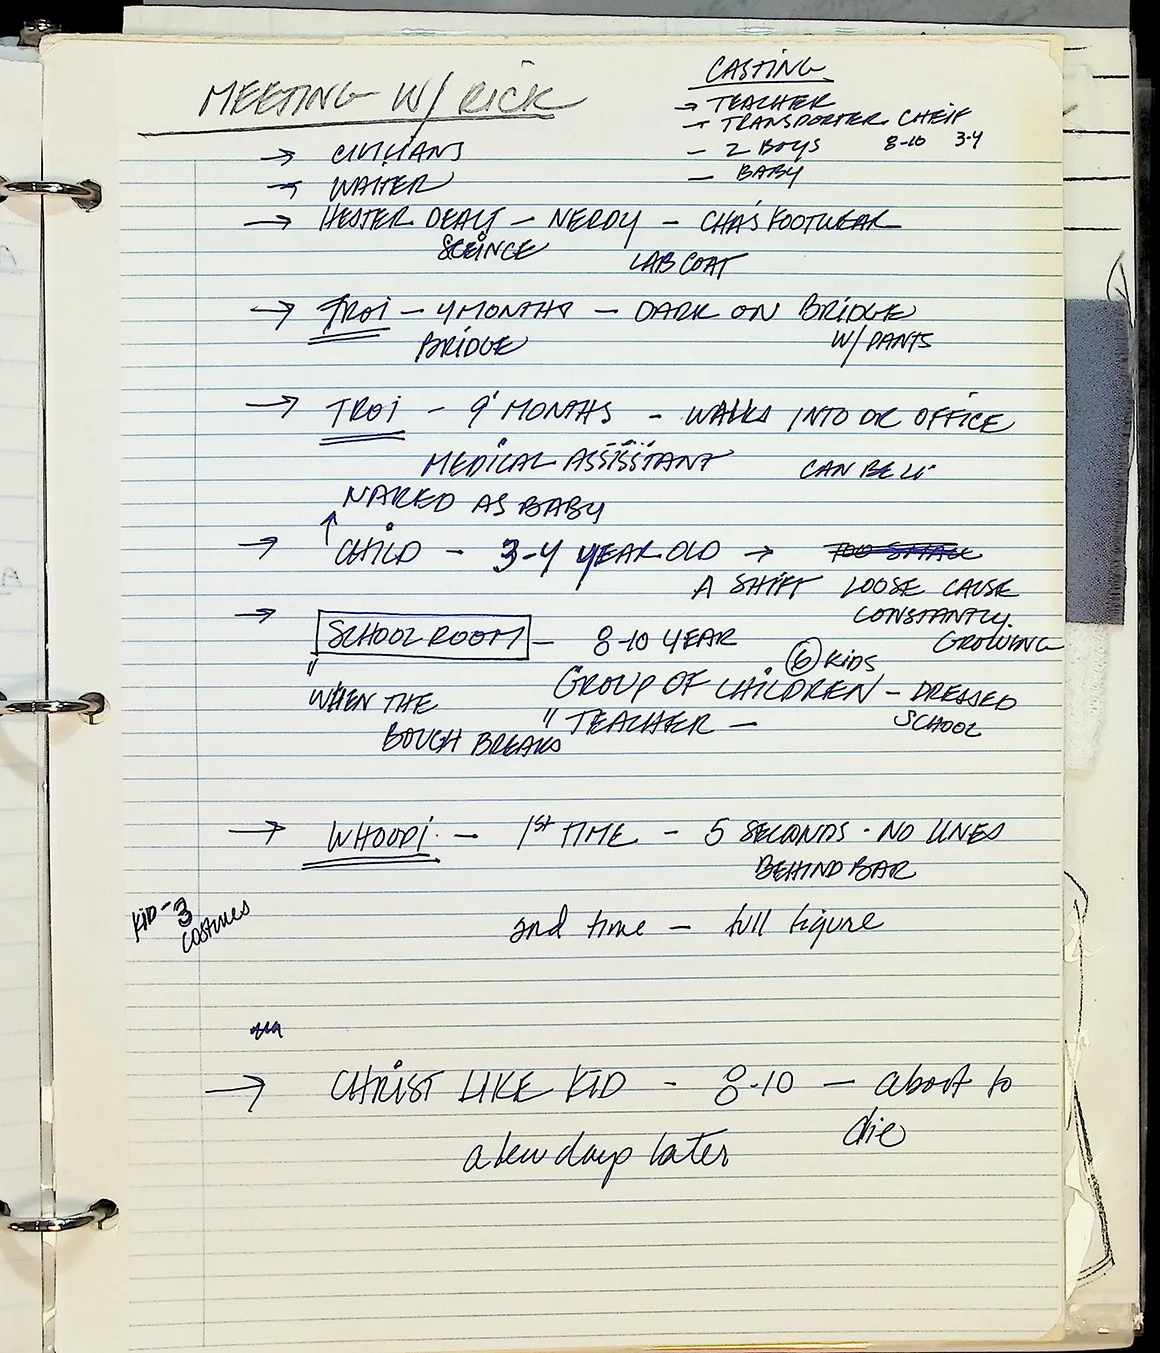 MEETING W/ RICK
CASTING
→ TEACHER
→ TRANSPORTER CHEIF
- 2 BOYS 8-10 3-4
- BABY
→ CIVILIANS
→ WAITER
→ HESTER DEALT - NERDY - CHA'S FOOTWEAR
SCEINCE LAB COAT
→ TROI - 4 MONTHS - DARK ON BRIDGE
BRIDGE W/ PANTS
→ TROI - 9 MONTHS - WALKS INTO DR OFFICE
MEDICAL ASSISTANT CAN BE
↑ NAKED AS BABY
→ CHILD - 3-4 YEAR OLD → TOO SMALL
A SHIFT LOOSE CAUSE
CONSTANTLY
GROWING
→ SCHOOL ROOM - 8-10 YEAR
6 KIDS
" WHEN THE GROUP OF CHILDREN - DRESSED
BOUGH BREAKS " TEACHER - SCHOOL
→ WHOOPI - 1ST TIME - 5 SECONDS · NO LINES
BEHIND BAR
KID - 3
COSTUMES
2nd time - full figure
→ CHRIST LIKE KID - 8-10 - about to
die
a few days later